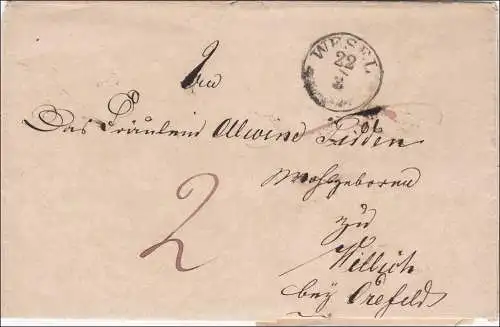 WESEL
22
2
An
Das Fräulein Allwine Lisden
Wohlgeboren
2
zu
Willich
bey Crefeld